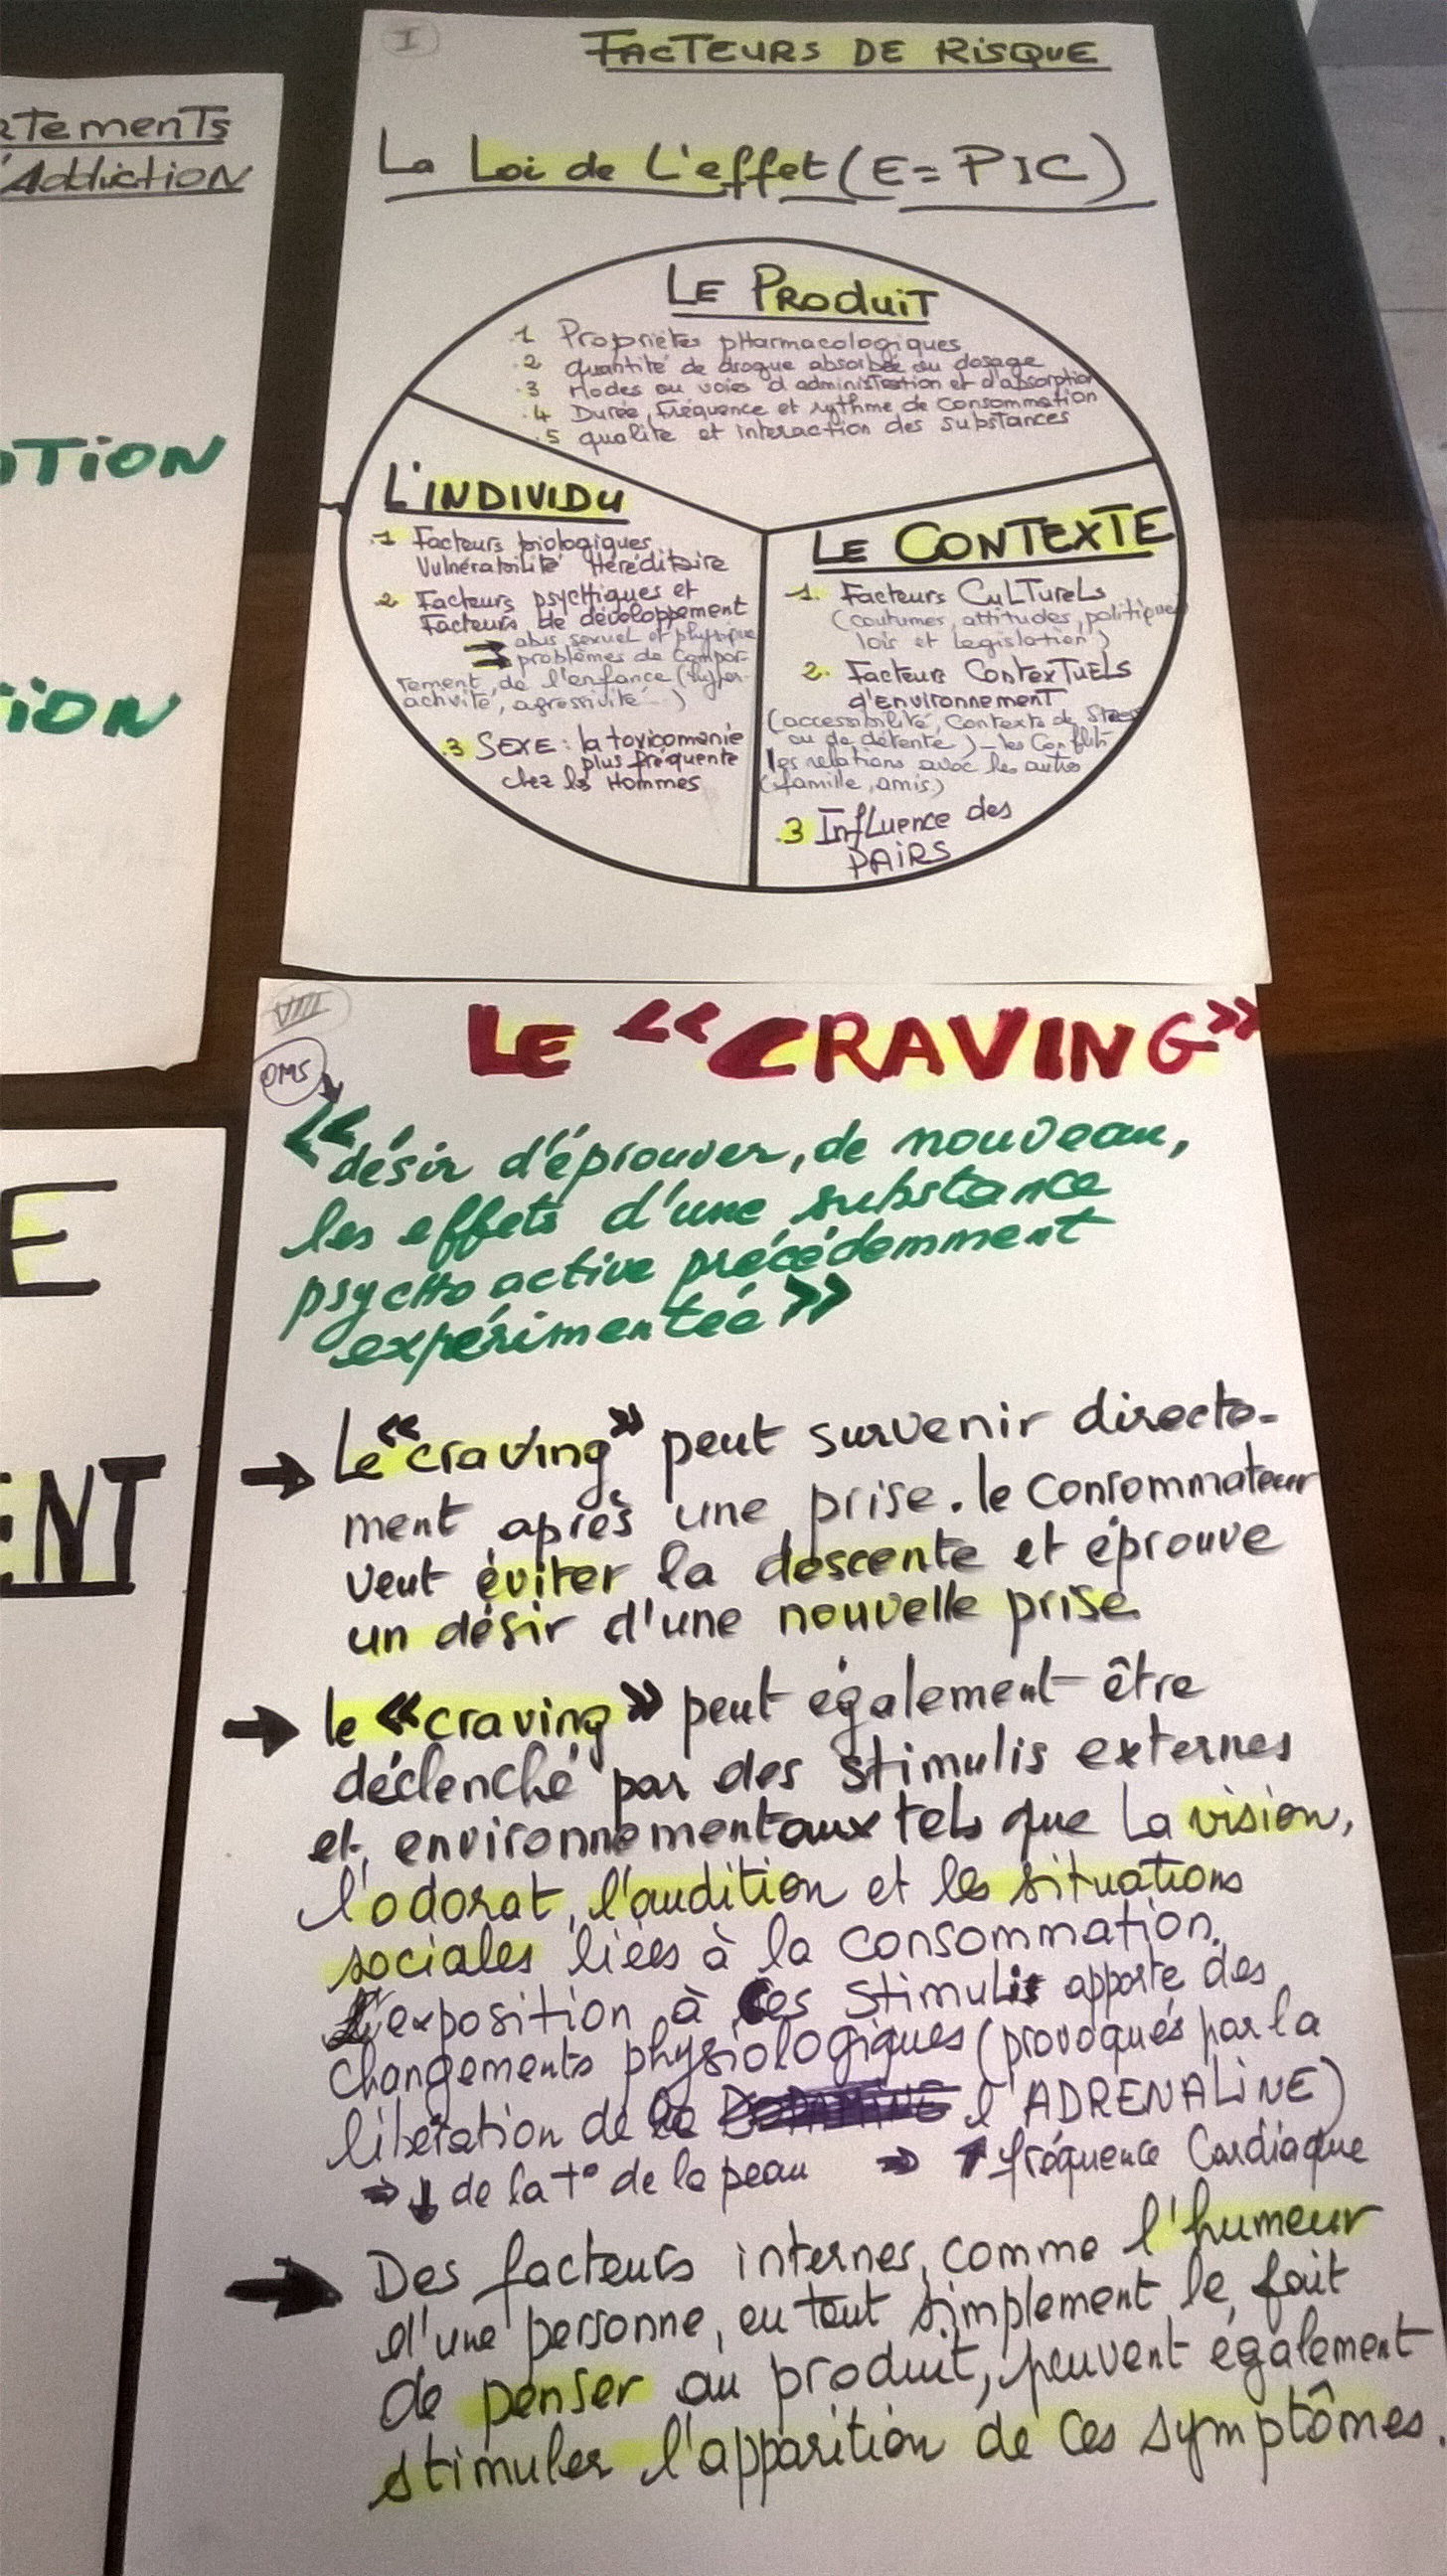 rtements
l'Addiction
TION
TION
E
ENT
I
FACTEURS DE RISQUE
La Loi de L'effet (E = PIC)
LE PRODUIT
.1 Propriétés pharmacologiques
.2 quantité de drogue absorbée ou dosage
.3 Modes ou voies d'administration et d'absorption
.4 Durée, Fréquence et rythme de consommation
.5 qualité et interaction des substances
L'INDIVIDU
.1 Facteurs biologiques
Vulnérabilité Héréditaire
.2 Facteurs psychiques et
Facteurs de développement
→ abus sexuel et physique
→ problèmes de compor-
tement de l'enfance (hyper-
activité, agressivité...)
.3 SEXE : la toxicomanie
plus fréquente
chez les Hommes
LE CONTEXTE
1. Facteurs CULTURELS
(coutumes, attitudes, politiques
lois et legislation)
2. Facteurs CONTEXTUELS
d'environnement
(accessibilité, contexte de stress
ou de détente) - les conflits
les relations avec les autres
(famille, amis)
.3 Influence des
PAIRS
VIII
OMS
LE «CRAVING»
«désir d'éprouver, de nouveau,
les effets d'une substance
psycho active précédemment
expérimentée»
→ Le «craving» peut survenir directe-
ment après une prise. le consommateur
veut éviter la descente et éprouve
un désir d'une nouvelle prise
→ le «craving» peut également être
déclenché par des stimulis externes
et environnementaux tels que la vision,
l'odorat, l'audition et les situations
sociales liées à la consommation.
L'exposition à ces stimulis apporte des
changements physiologiques (provoqués par la
libération de la DOPAMINE l'ADRENALINE)
⇒ ↓ de la t° de la peau ⇒ ↑ fréquence Cardiaque
→ Des facteurs internes, comme l'humeur
d'une personne, ou tout simplement le fait
de penser au produit, peuvent également
stimuler l'apparition de ces symptômes.